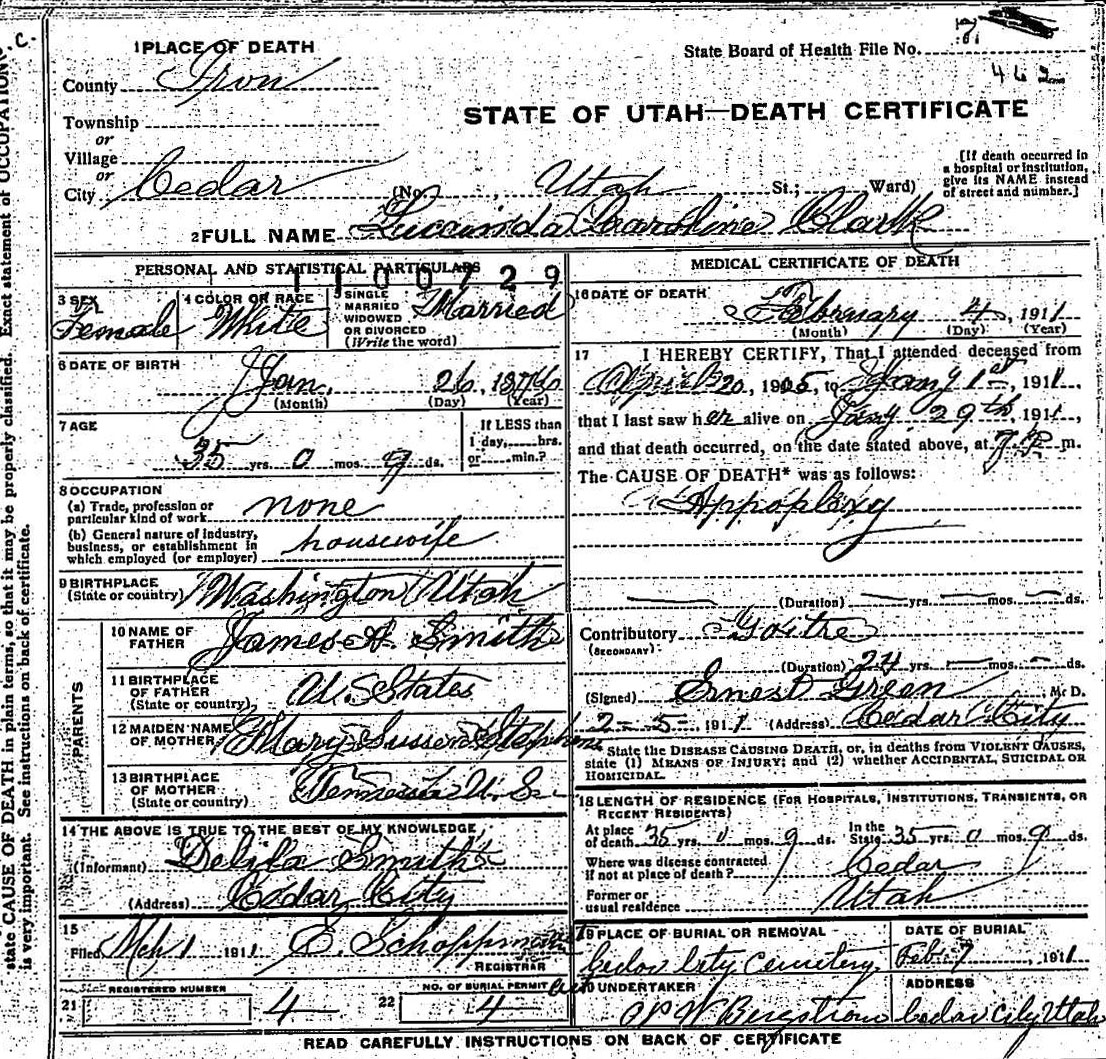 .C.
state CAUSE OF DEATH in plain terms, so that it may be properly classified. Exact statement of OCCUPATION
is very important. See instructions on back of certificate.
1 PLACE OF DEATH
State Board of Health File No.
462
County Iron
STATE OF UTAH—DEATH CERTIFICATE
Township
or
Village
or
City Cedar (No. , Utah St.; Ward)
[If death occurred in
a hospital or institution,
give its NAME instead
of street and number.]
2 FULL NAME Lucainda Caroline Clark
PERSONAL AND STATISTICAL PARTICULARS
1100729
3 SEX
Female
4 COLOR OR RACE
White
5 SINGLE
MARRIED
WIDOWED
OR DIVORCED
(Write the word)
Married
6 DATE OF BIRTH
Jan. 26, 1876
(Month) (Day) (Year)
7 AGE
35 yrs. 0 mos. 9 ds.
If LESS than
1 day, hrs.
or min.?
8 OCCUPATION
(a) Trade, profession or
particular kind of work none
(b) General nature of industry,
business, or establishment in
which employed (or employer) housewife
9 BIRTHPLACE
(State or country) Washington Utah
PARENTS
10 NAME OF
FATHER James A. Smith
11 BIRTHPLACE
OF FATHER
(State or country) U. States
12 MAIDEN NAME
OF MOTHER Mary Susson Stephens
13 BIRTHPLACE
OF MOTHER
(State or country) U. S.
14 THE ABOVE IS TRUE TO THE BEST OF MY KNOWLEDGE
(Informant) Delila Smith
(Address) Cedar City
15
Filed Mch 1 1911 E. Schoppmann
REGISTRAR
21 REGISTERED NUMBER 4
22 NO. OF BURIAL PERMIT 4
MEDICAL CERTIFICATE OF DEATH
16 DATE OF DEATH
February 4, 1911
(Month) (Day) (Year)
17 I HEREBY CERTIFY, That I attended deceased from
April 20, 1905, to Jany 1st, 1911,
that I last saw her alive on Jany 29th, 1911,
and that death occurred, on the date stated above, at 7 P. m.
The CAUSE OF DEATH* was as follows:
Appoplexy
(Duration) yrs. mos. ds.
Contributory Goitre
(SECONDARY)
(Duration) 24 yrs. mos. ds.
(Signed) Ernest Green M. D.
2-5- 1911 (Address) Cedar City
State the DISEASE CAUSING DEATH, or, in deaths from VIOLENT CAUSES,
state (1) MEANS OF INJURY; and (2) whether ACCIDENTAL, SUICIDAL OR
HOMICIDAL.
18 LENGTH OF RESIDENCE (FOR HOSPITALS, INSTITUTIONS, TRANSIENTS, OR
RECENT RESIDENTS)
At place
of death 35 yrs. 0 mos. 9 ds.
In the
State 35 yrs. 0 mos. 9 ds.
Where was disease contracted
if not at place of death? Cedar
Former or
usual residence Utah
19 PLACE OF BURIAL OR REMOVAL
Cedar City Cemetery
DATE OF BURIAL
Feb. 7, 1911
20 UNDERTAKER
W Bergstrom
ADDRESS
Cedar City Utah
READ CAREFULLY INSTRUCTIONS ON BACK OF CERTIFICATE